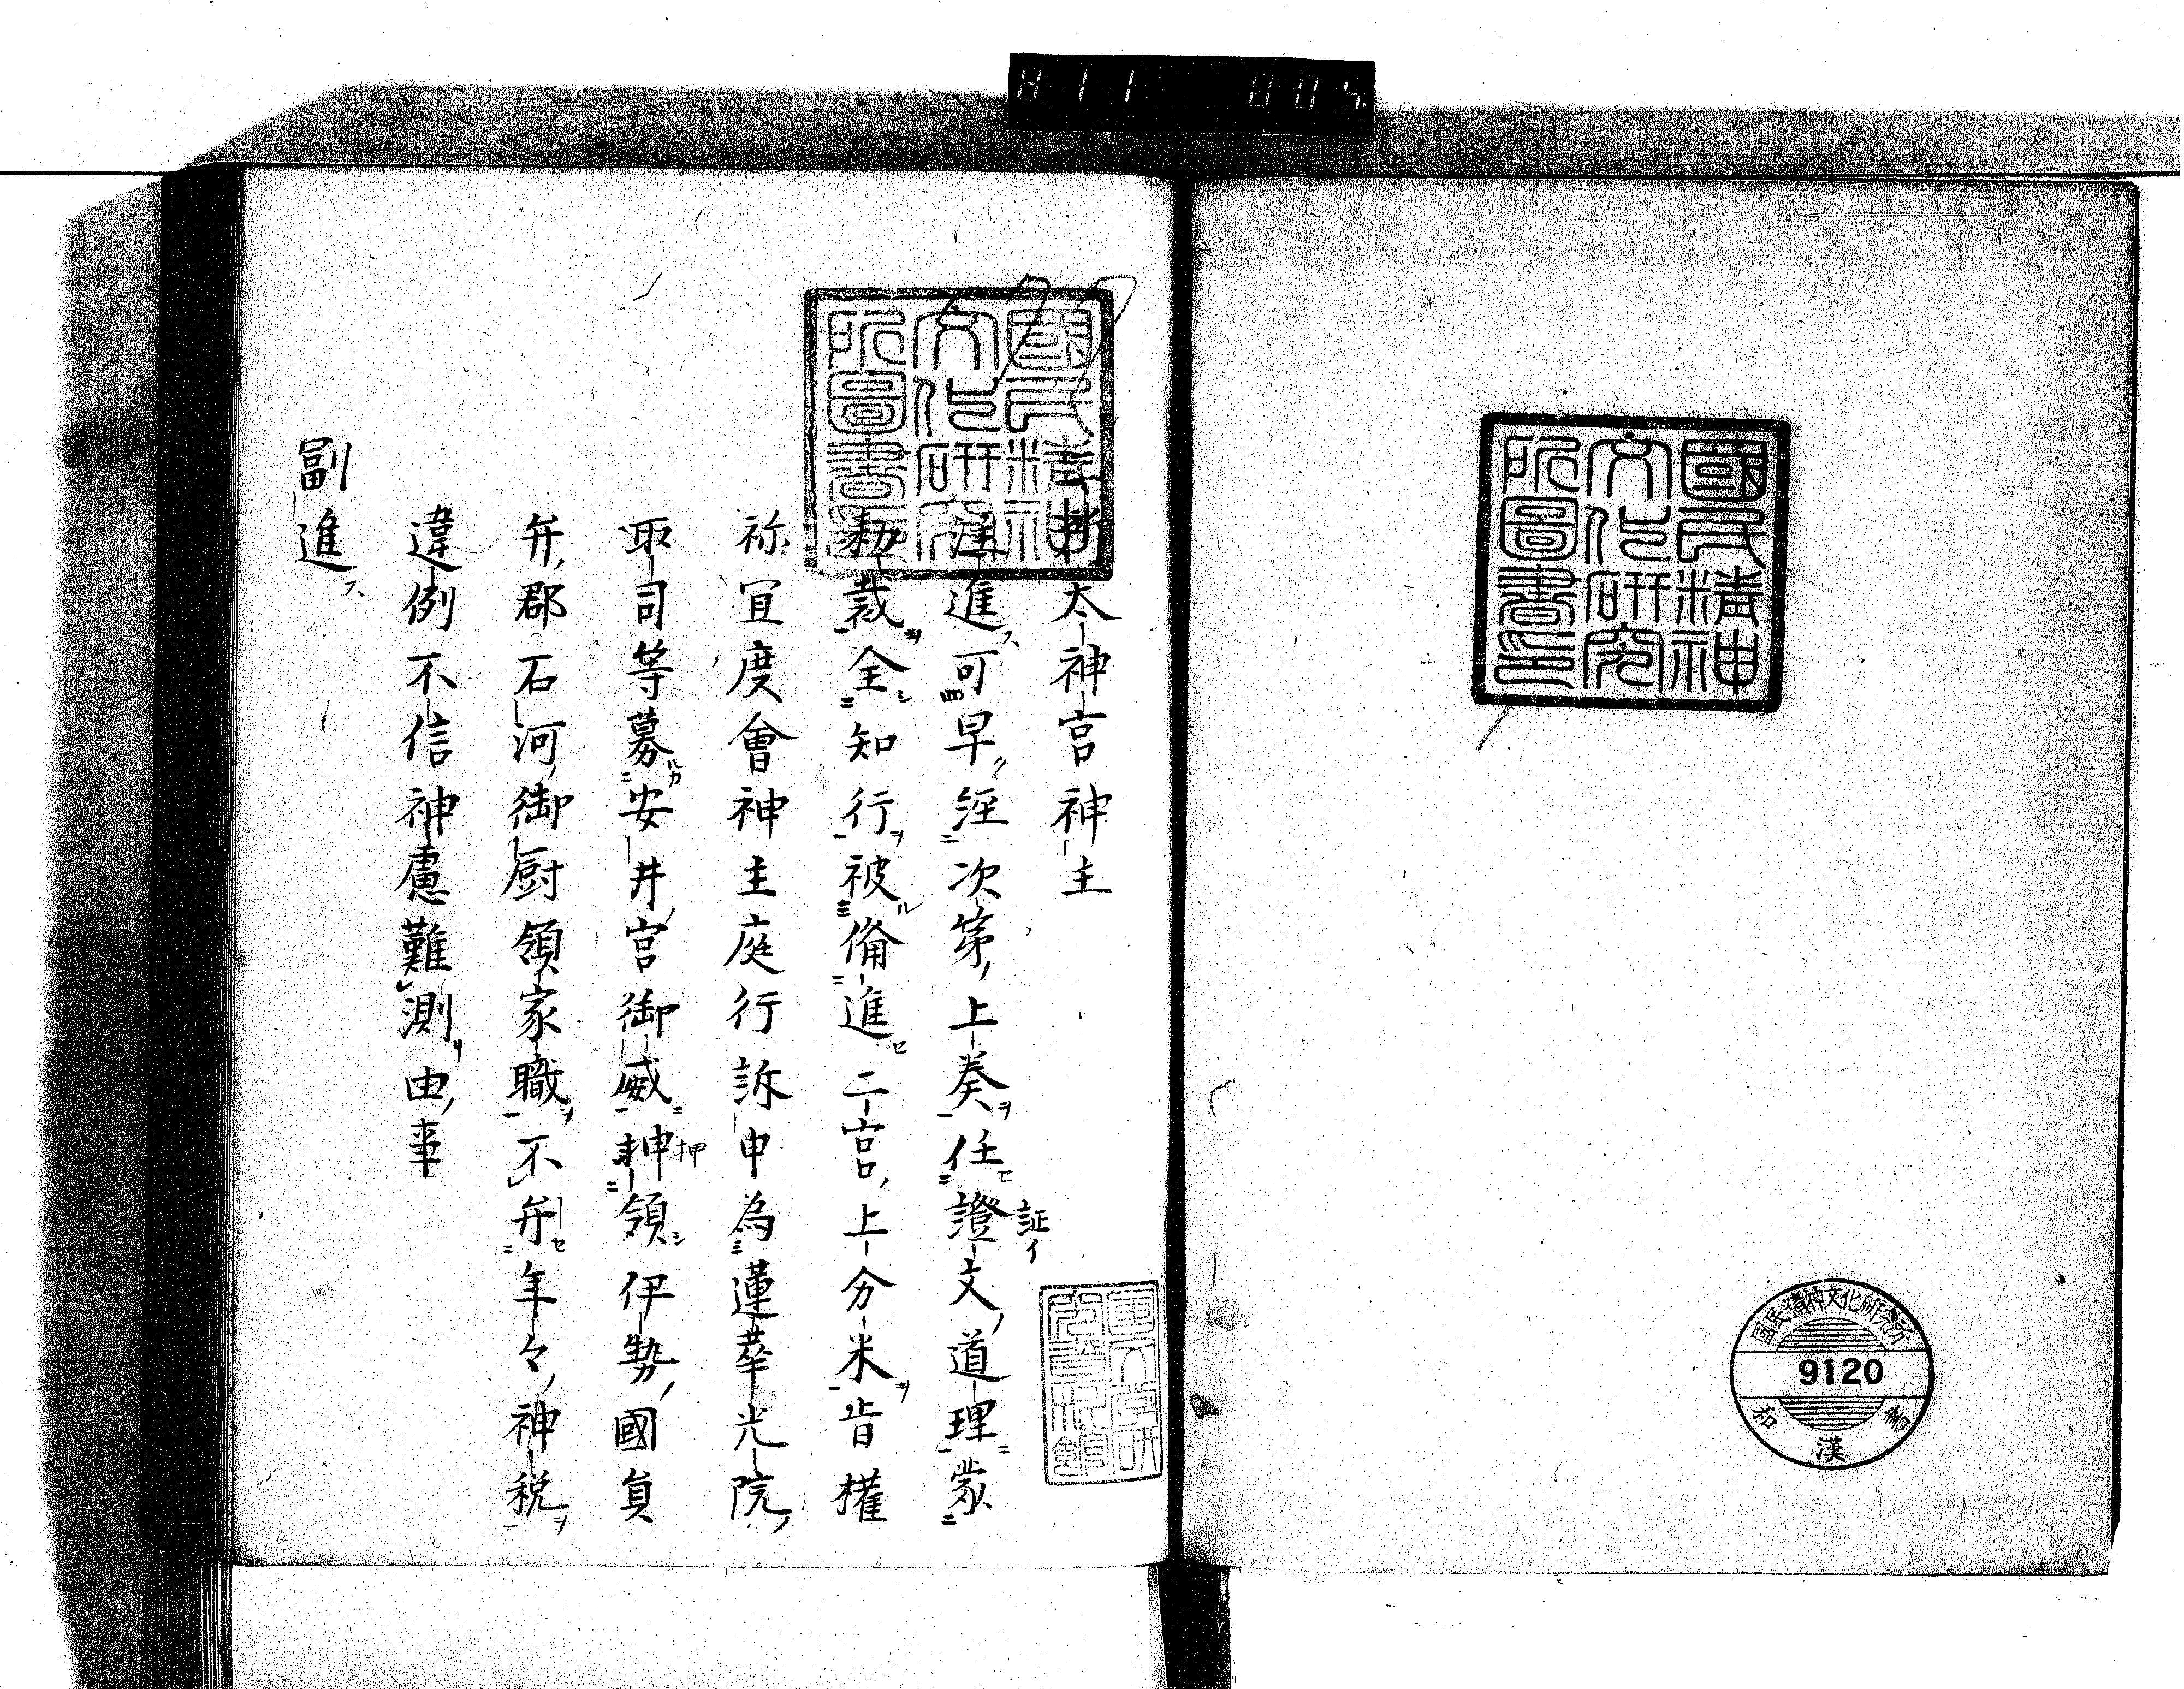 811 005
國民精神
文化研究
所圖書印
國民精神文化研究所
9120
和漢書
國民精神
文化研究
所圖書印
太神宮神主
注進可早経次第上奏任證文道理蒙
証イ
勅裁全知行被備進二宮上分米旨權
祢宜度會神主庭行訴申為蓮華光院
取司等募安井宮御威押領伊勢國員
押
弁郡石河御厨領家職不弁年々神税
違例不信神慮難測由事
副進